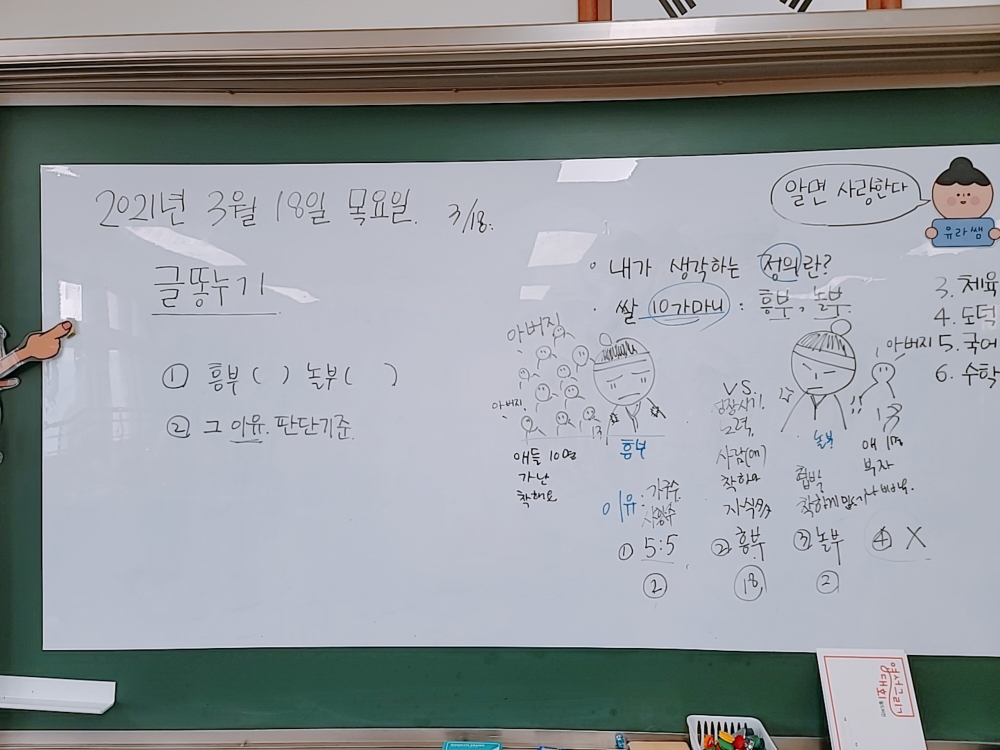 2021년 3월 18일 목요일. 3/18.
글똥누기
① 흥부 ( ) 놀부 ( )
② 그 이유. 판단기준.
알면 사랑한다
유라쌤
내가 생각하는 정의란?
쌀 10가마니 : 흥부, 놀부.
아버지
아버지.
흥부
애들 10명
가난
착해요
이유 : 가구수.
VS.
노력,
착하다
놀부
협박
아버지
애 1명
부자
① 5:5
②
② 흥부
18
③ 놀부
②
④ X
3. 체육
4. 도덕
5. 국어
6. 수학